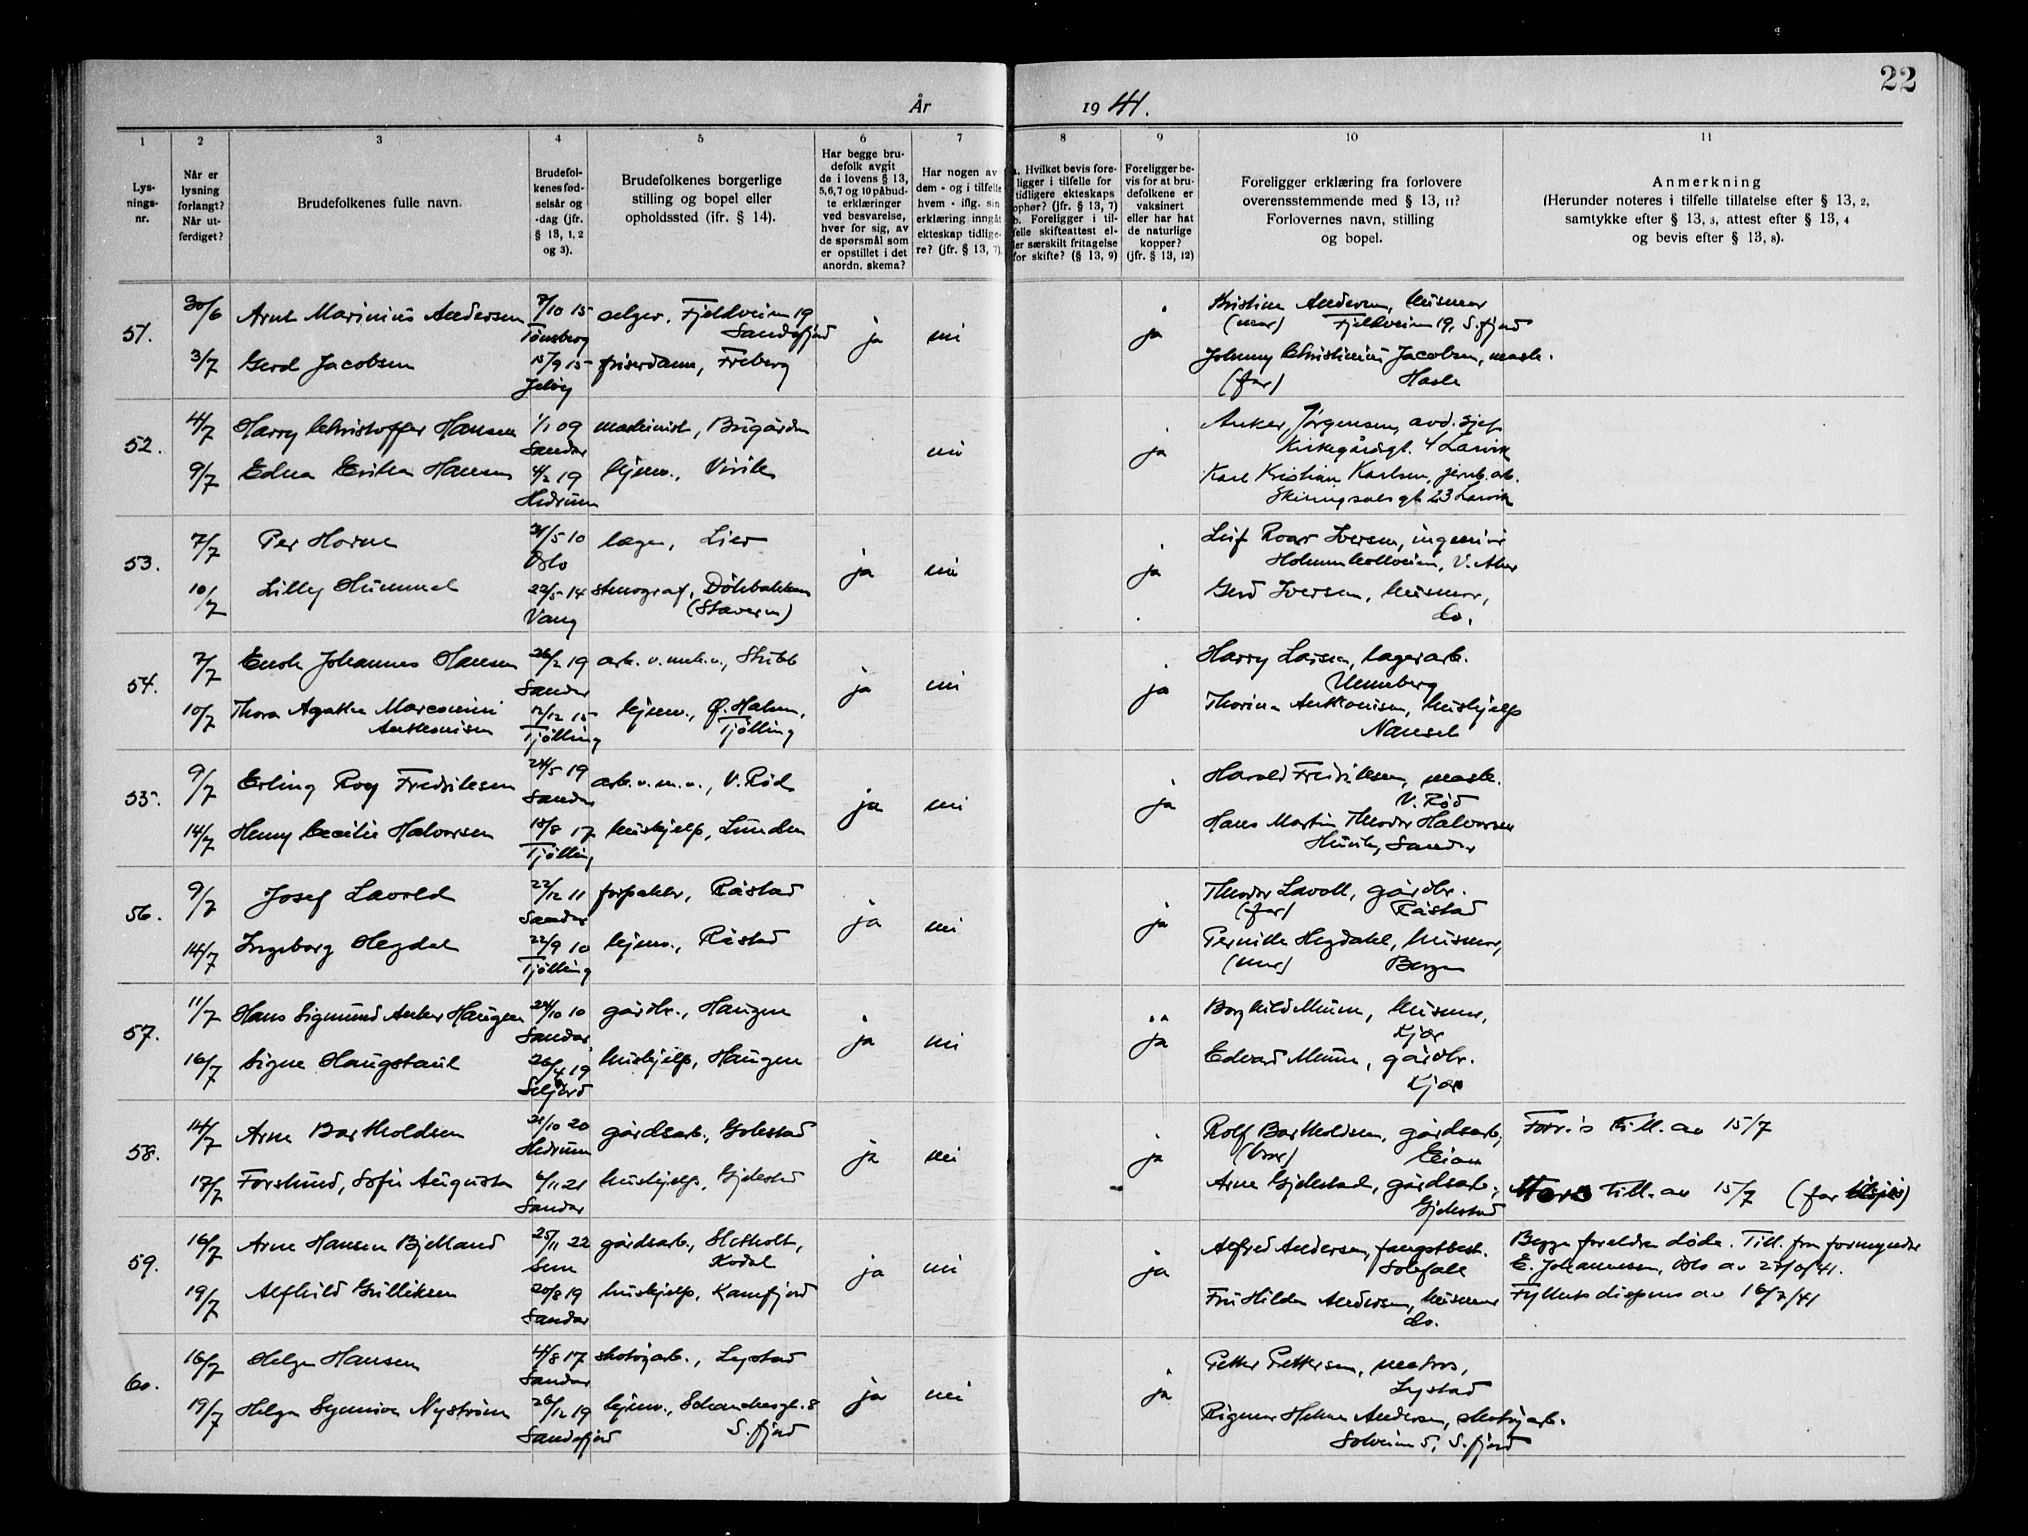 22
År 1941.
1 2 3 4 5 6 7 8 9 10 11
Lys-
nings-
nr.
Når er
lysning
forlangt?
Når ut-
ferdiget?
Brudefolkenes fulle navn.
Brudefol-
kenes fød-
selsår og
-dag (jfr.
§ 13, 1, 2
og 3).
Brudefolkenes borgerlige
stilling og bopel eller
opholdssted (jfr. § 14).
Har begge bru-
defolk avgit
de i lovens § 13,
5, 6, 7 og 10 påbud-
te erklæringer
ved besvarelse,
hver for sig, av
de spørsmål som
er opstillet i det
anordn. skema?
Har nogen av
dem - og i tilfelle
hvem - iflg. sin
erklæring inngåt
ekteskap tidlige-
re? (jfr. § 13, 7).
a. Hvilket bevis fore-
ligger i tilfelle for
tidligere ekteskaps
ophør? (jfr. § 13, 7)
b. Foreligger i til-
felle skifteattest el-
ler særskilt fritagelse
for skifte? (§ 13, 9)
Foreligger be-
vis for at bru-
defolkene er
vaksinert
eller har hat
de naturlige
kopper?
(jfr. § 13, 12)
Foreligger erklæring fra forlovere
overensstemmende med § 13, 11?
Forlovernes navn, stilling
og bopel.
Anmerkning
(Herunder noteres i tilfelle tillatelse efter § 13, 2,
samtykke efter § 13, 3, attest efter § 13, 4
og bevis efter § 13, 8).
51. 30/6 Arne Marinius Andersen 7/10 15 selger, Fjellveien 19 ja nei ja Kristine Andersen, husmor
Tønsberg Sandefjord (mor) Fjellveien 19, S.fjord
3/7 Gerd Jacobsen 15/9 15 friserdame, Freberg Johnny Christinius Jacobsen, mask.
Jeløy (far) Hasle
52. 4/7 Harry Christoffer Hansen 1/1 09 maskinist, Bugården nei ja Anker Jørgensen, avd. sjef
Sandar Kirkegårdsgt. 4 Larvik
9/7 Edna Erika Hansen 4/2 19 hjemv., Virik Karl Kristian Karlsen, jernb.arb.
Hedrum Skiringssalsgt. 23 Larvik
53. 7/7 Per Horne 31/5 10 læge, Lier ja nei ja Leif Roar Iversen, ingeniør
Oslo Holmenkollveien, V. Aker
10/7 Lilly Hummel 22/5 14 stenograf, Dölebakken Gerd Iversen, husmor,
Vang (Stavern) do.
54. 7/7 Enok Johannes Hansen 26/2 19 arb. v. mek.v., Stubb ja nei ja Harry Larsen, lagerarb.
Sandar Unneberg
10/7 Thora Agathe Marconini 12/12 15 hjemv., Ø. Halsen, Thorina Anthonisen, hushjelp
Anthonisen Tjölling Tjölling Nanset
55. 9/7 Erling Roy Fredriksen 24/5 19 arb. v. m.v., V. Röd ja nei ja Harald Fredriksen, mask.
Sandar V. Röd
14/7 Henny Cecilie Halvorsen 18/8 17 hushjelp, Lunden Hans Martin Theodor Halvorsen
Tjölling Huvik, Sandar
56. 9/7 Josef Lavold 22/12 11 forpakter, Råstad ja nei ja Theodor Lavoll, gårdbr.
Sandar (far) Råstad
14/7 Ingeborg Hegdal 22/9 10 hjemv., Råstad Pernille Hegdahl, husmor,
Tjölling (mor) Bergen
57. 11/7 Hans Sigmund Anker Haugen 24/10 10 gårdbr., Haugen ja nei ja Borghild Muum, husmor,
Sandar Kjær
16/7 Signe Haugstaul 26/4 19 hushjelp, Haugen Edvard Muum, gårdbr.
Seljord Kjær
58. 14/7 Arne Bartholdsen 21/10 20 gårdsarb., Gokstad ja nei ja Rolf Bartholdsen, gårdsarb., Forr.s till. av 15/7
Hedrum (bror)
17/7 Forslund, Sofie Augusta 6/11 21 hushjelp, Gjekstad Arne Gjekstad, gårdsarb., Mors till. av 15/7 (far
Sandar Gjekstad
59. 16/7 Arne Hansen Bjelland 25/11 22 gårdsarb., Slettholt, ja nei ja Alfred Andersen, fangstbest. Begge foreldre døde. Till. fra formynder
Sem Kodal Solofall E. Johannesen, Oslo av
19/7 Alfhild Gulliksen 20/8 19 hushjelp, Kamfjord Fru Hilda Andersen, husmor Fylkets dispens av 16/7/41
Sandar do.
60. 16/7 Helge Hansen 4/8 17 skotøyarb., Lystad ja nei ja Petter Pettersen, matros,
Sandar Lystad
19/7 Helga Synnöve Nyström 26/12 19 hjemv., Schanchesgt. 8 Rigmor Helene Andersen, skotøyarb.
Sandefjord S.fjord Solveien 5, S.fjord